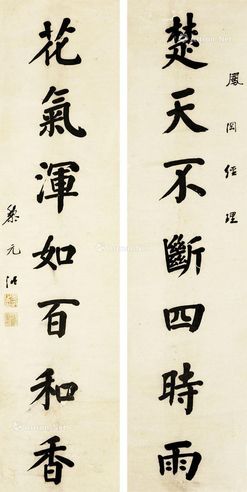 鳳岡經理
楚天不斷四時雨
花氣渾如百和香
黎元洪